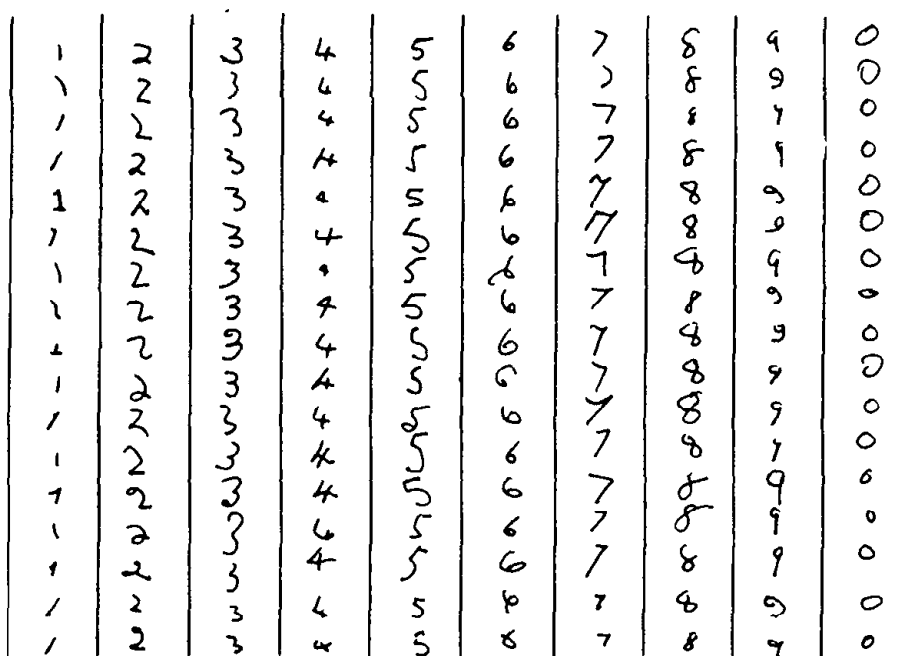 1 2 3 4 5 6 7 8 9 0
1 2 3 4 5 6 7 8 9 0
1 2 3 4 5 6 7 8 9 0
1 2 3 4 5 6 7 8 9 0
1 2 3 4 5 6 7 8 9 0
1 2 3 4 5 6 7 8 9 0
1 2 3 4 5 6 7 8 9 0
1 2 3 4 5 6 7 8 9 0
1 2 3 4 5 6 7 8 9 0
1 2 3 4 5 6 7 8 9 0
1 2 3 4 5 6 7 8 9 0
1 2 3 4 5 6 7 8 9 0
1 2 3 4 5 6 7 8 9 0
1 2 3 4 5 6 7 8 9 0
1 2 3 4 5 6 7 8 9 0
1 2 3 4 5 6 7 8 9 0
1 2 3 4 5 6 7 8 9 0